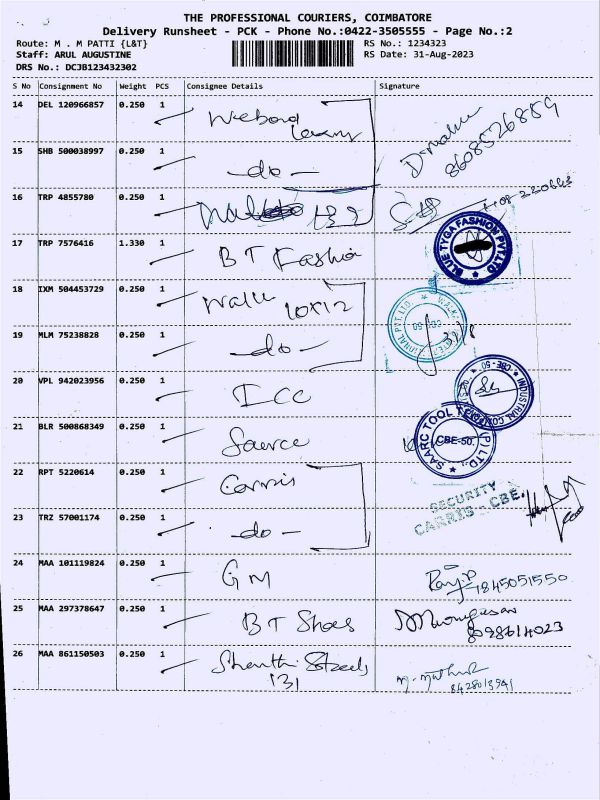 THE PROFESSIONAL COURIERS, COIMBATORE
Delivery Runsheet - PCK - Phone No.:0422-3505555 - Page No.:2
Route: M . M PATTI {L&T} RS No.: 1234323
Staff: ARUL AUGUSTINE RS Date: 31-Aug-2023
DRS No.: DCJB123432302
S No Consignment No Weight PCS Consignee Details Signature
14 DEL 120966857 0.250 1
15 SHB 500038997 0.250 1 -do-
8608526859
16 TRP 4855780 0.250 1
BLUE TYGA FASHION PVT LTD
17 TRP 7576416 1.330 1 BT Fashion
18 IXM 504453729 0.250 1
19 MLM 75238828 0.250 1 -do-
31/8
20 VPL 942023956 0.250 1 ICC
CBE-50
21 BLR 500868349 0.250 1
SAARC TOOL (P) LTD
CBE-50.
22 RPT 5220614 0.250 1 Carris
SECURITY
CARRIS - CBE.
23 TRZ 57001174 0.250 1 -do-
24 MAA 101119824 0.250 1 GM
25 MAA 297378647 0.250 1 BT Shoes
26 MAA 861150503 0.250 1 Shanthi Steels
131